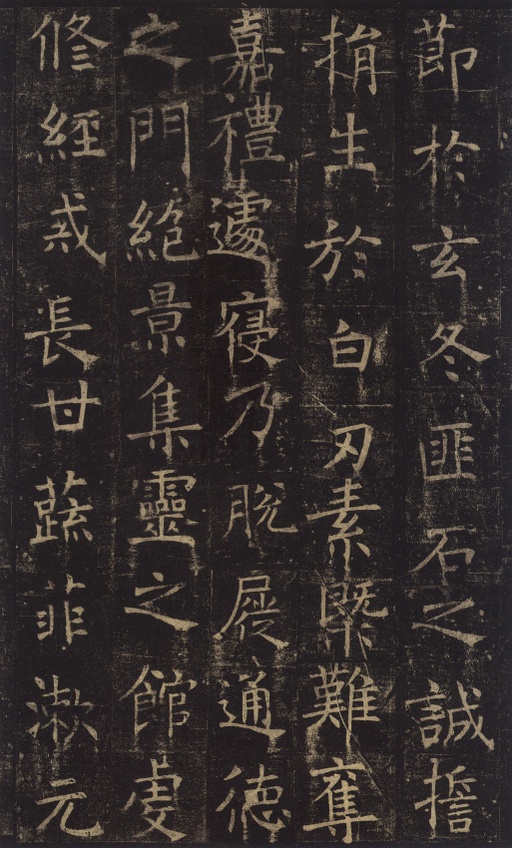 莭扵玄冬匪石之誠誓
捐生於白刃素槩難奪
嘉禮遽寑乃脫屣通德
之門絕景集靈之館虔
修經戒長甘蔬菲漱元